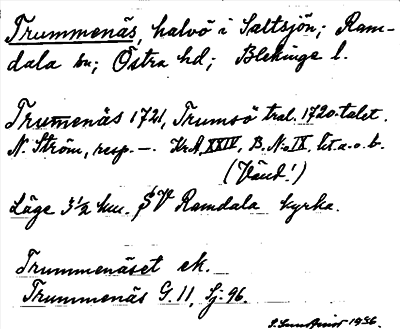 Trummenäs, halvö i Saltsjön; Ram-
dala sn; Östra hd; Blekinge l.
Trummenäs 1721, Trumsö trol. 1720-talet.
N. Ström, resp. —. KrA, XXIV, B. No IX. lit a. o. b.
(Vänd!)
Läge 3½ km. SV Ramdala kyrka.
Trummenäset ek.
Trummenäs G. 11, Sj. 96.
1936.